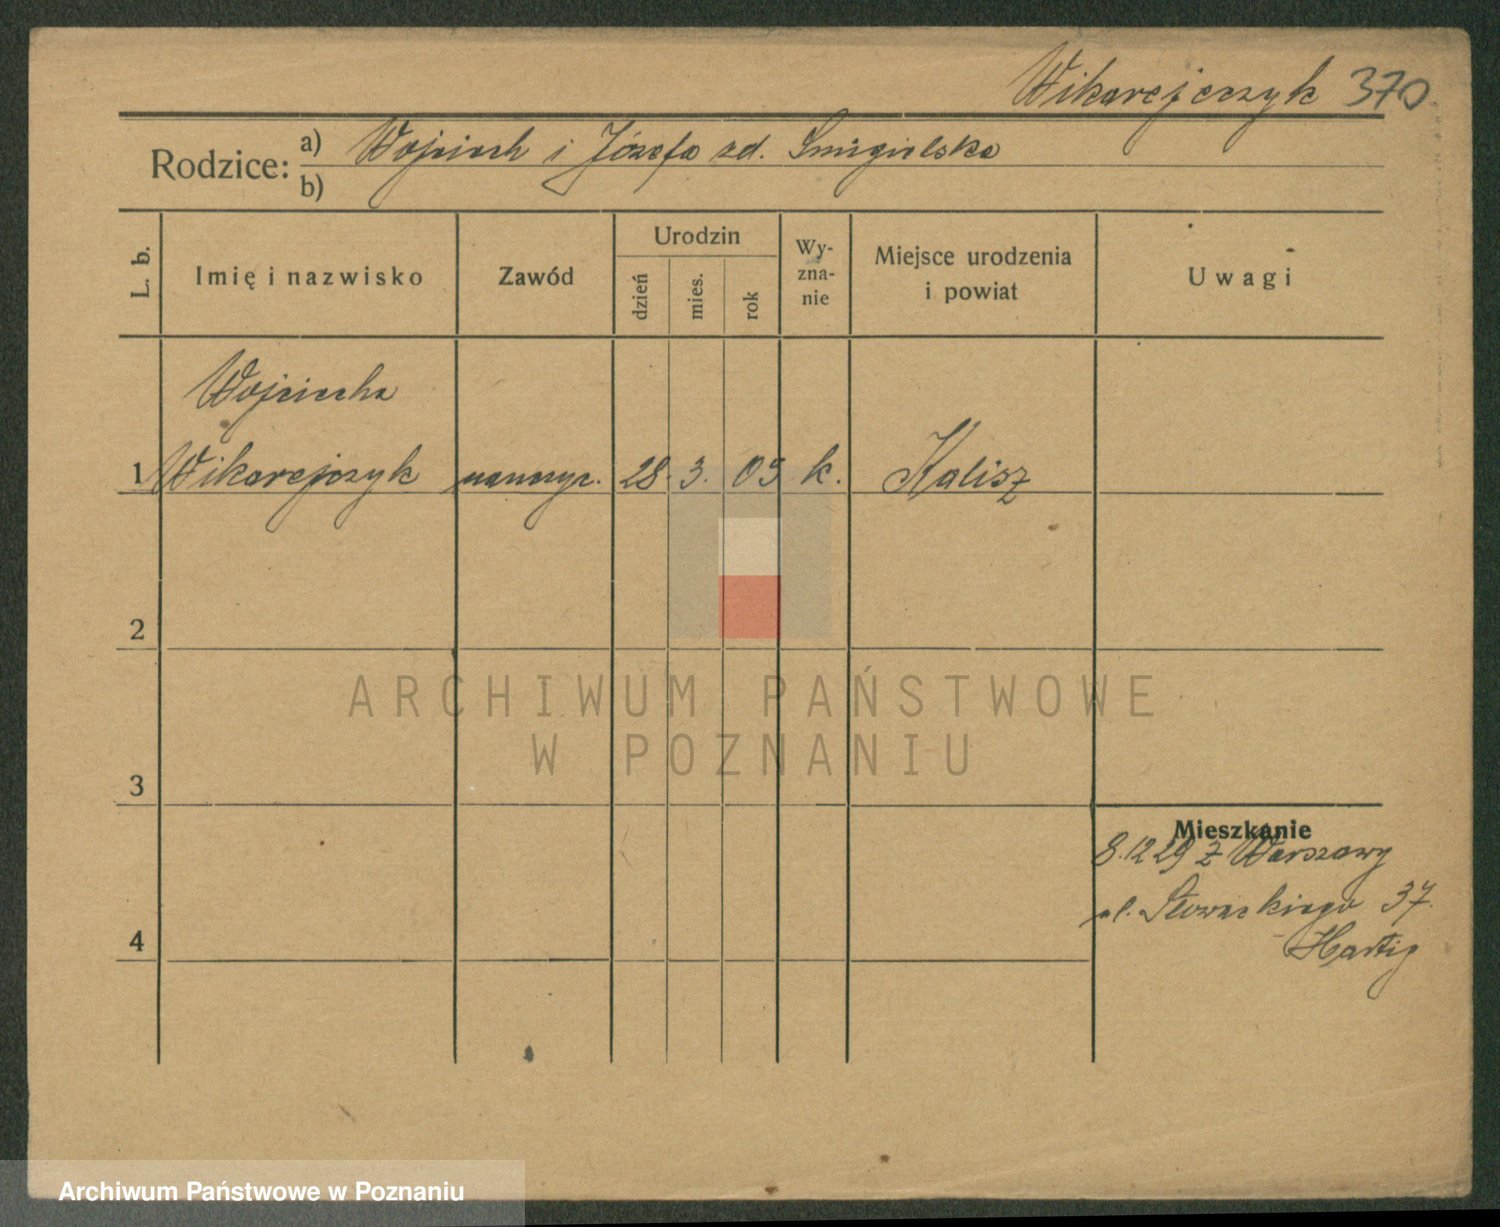 Wikarejczyk 370
Rodzice: a) Wojciech i Józefa zd. Śmigielska
b)
L. b.
Imię i nazwisko
Zawód
Urodzin
dzień
mies.
rok
Wy-
zna-
nie
Miejsce urodzenia
i powiat
Uwagi
Wojciecha
1 Wikarejczyk nauczyc. 28. 3. 05 k. Kalisz
2
ARCHIWUM PAŃSTWOWE
W POZNANIU
3
Mieszkanie
8.12 29 z Warszawy
ul. Słowackiego 37.
4
Hartig
Archiwum Państwowe w Poznaniu